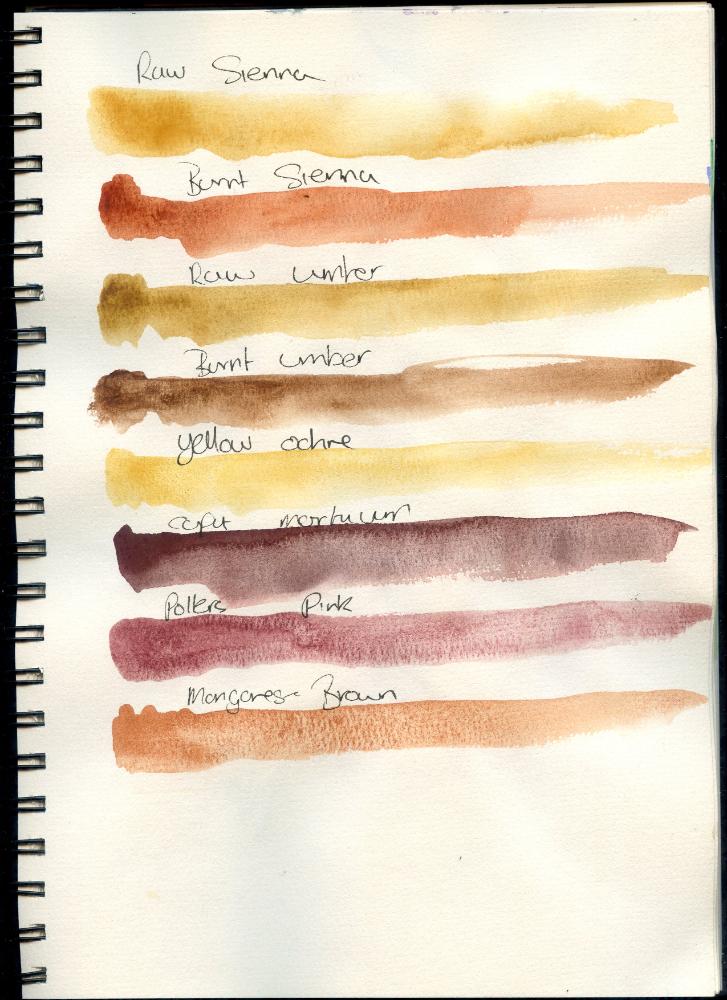 Raw Sienna
Burnt Sienna
Raw umber
Burnt umber
yellow ochre
caput mortuum
Potters Pink
Manganese Brown